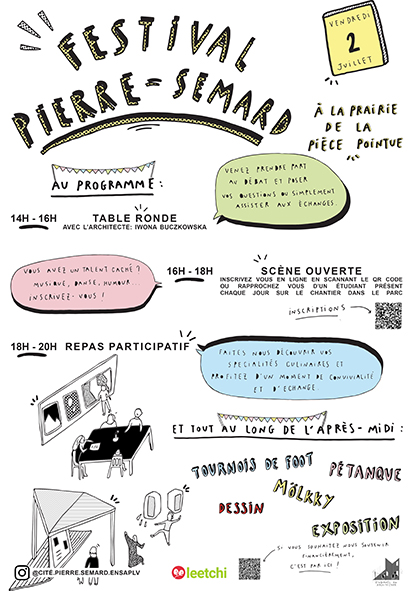 FESTIVAL
PIERRE-SEMARD
VENDREDI
2
JUILLET
À LA PRAIRIE
DE LA
PIÈCE POINTUE
AU PROGRAMME :
VENEZ PRENDRE PART
AU DÉBAT ET POSER
VOS QUESTIONS OU SIMPLEMENT
ASSISTER AUX ÉCHANGES.
14H - 16H TABLE RONDE
AVEC L'ARCHITECTE: IWONA BUCZKOWSKA
VOUS AVEZ UN TALENT CACHÉ ?
MUSIQUE, DANSE, HUMOUR...
INSCRIVEZ-VOUS !
16H - 18H SCÈNE OUVERTE
INSCRIVEZ VOUS EN LIGNE EN SCANNANT LE QR CODE
OU RAPPROCHEZ VOUS D'UN ÉTUDIANT PRÉSENT
CHAQUE JOUR SUR LE CHANTIER DANS LE PARC
INSCRIPTIONS
18H - 20H REPAS PARTICIPATIF
FAITES NOUS DÉCOUVRIR VOS
SPÉCIALITÉS CULINAIRES ET
PROFITEZ D'UN MOMENT DE CONVIVIALITÉ
ET D'ÉCHANGE.
ET TOUT AU LONG DE L'APRÈS-MIDI :
TOURNOIS DE FOOT
PÉTANQUE
MÖLKKY
DESSIN
EXPOSITION
SI VOUS SOUHAITEZ NOUS SOUTENIR
FINANCIÈREMENT,
C'EST PAR ICI !
@CITE.PIERRE.SEMARD.ENSAPLV
leetchi